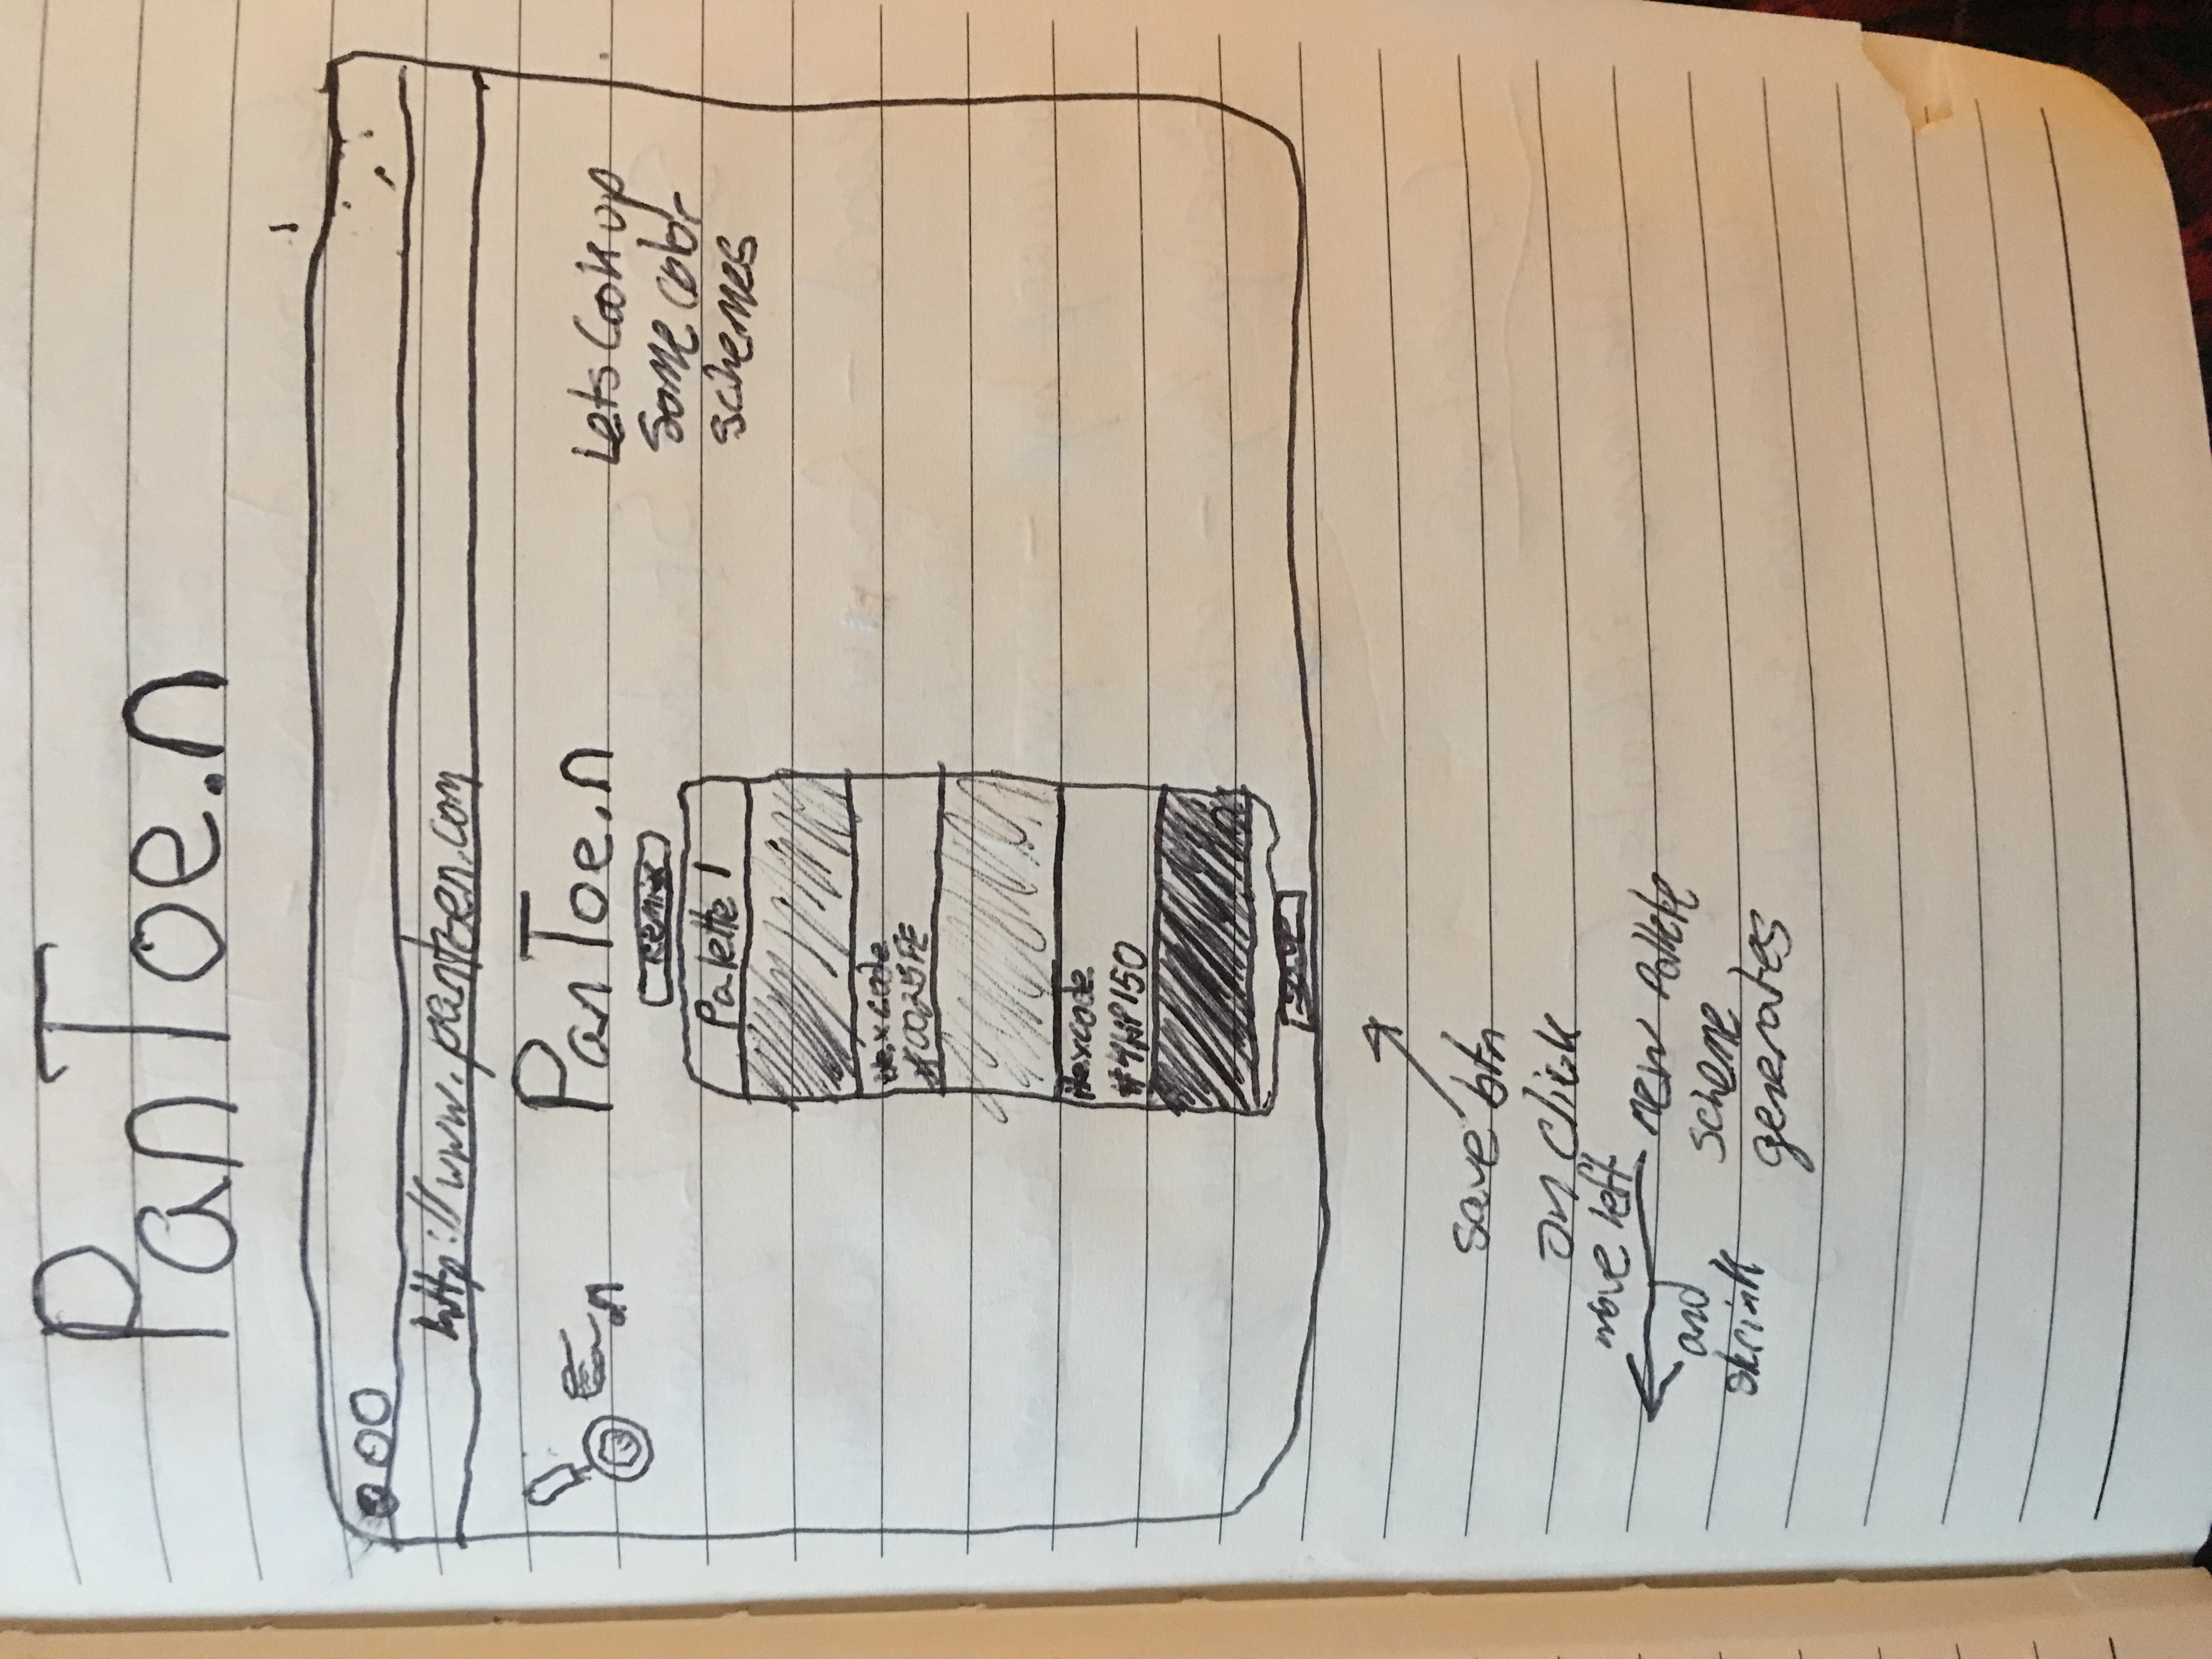 PanToe.n
http://www.pantoen.com
PanToe.n
Remix
Lets Cook up
Some color
schemes
Palette 1
Hexcode
#0025FE
Hexcode
save
save btn
on click
move left
and
shrink
new Pallete
scheme
generates